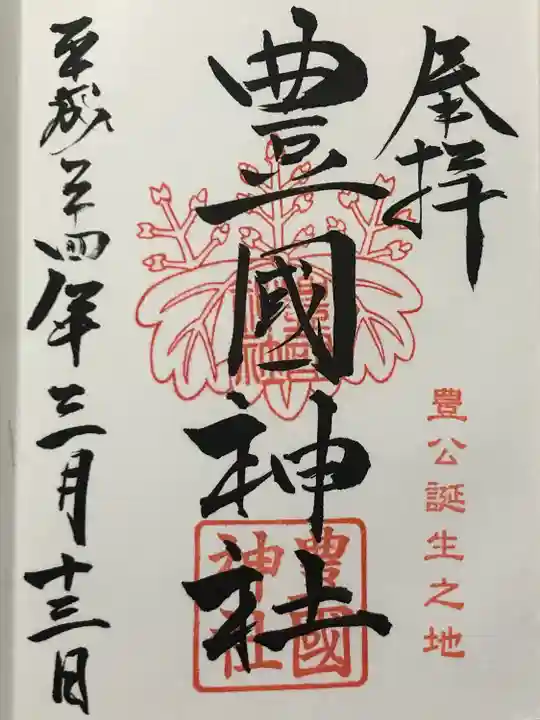 奉拝
豊公誕生之地
豊國神社
豊國神社
豊國神社
平成二十四年三月十三日